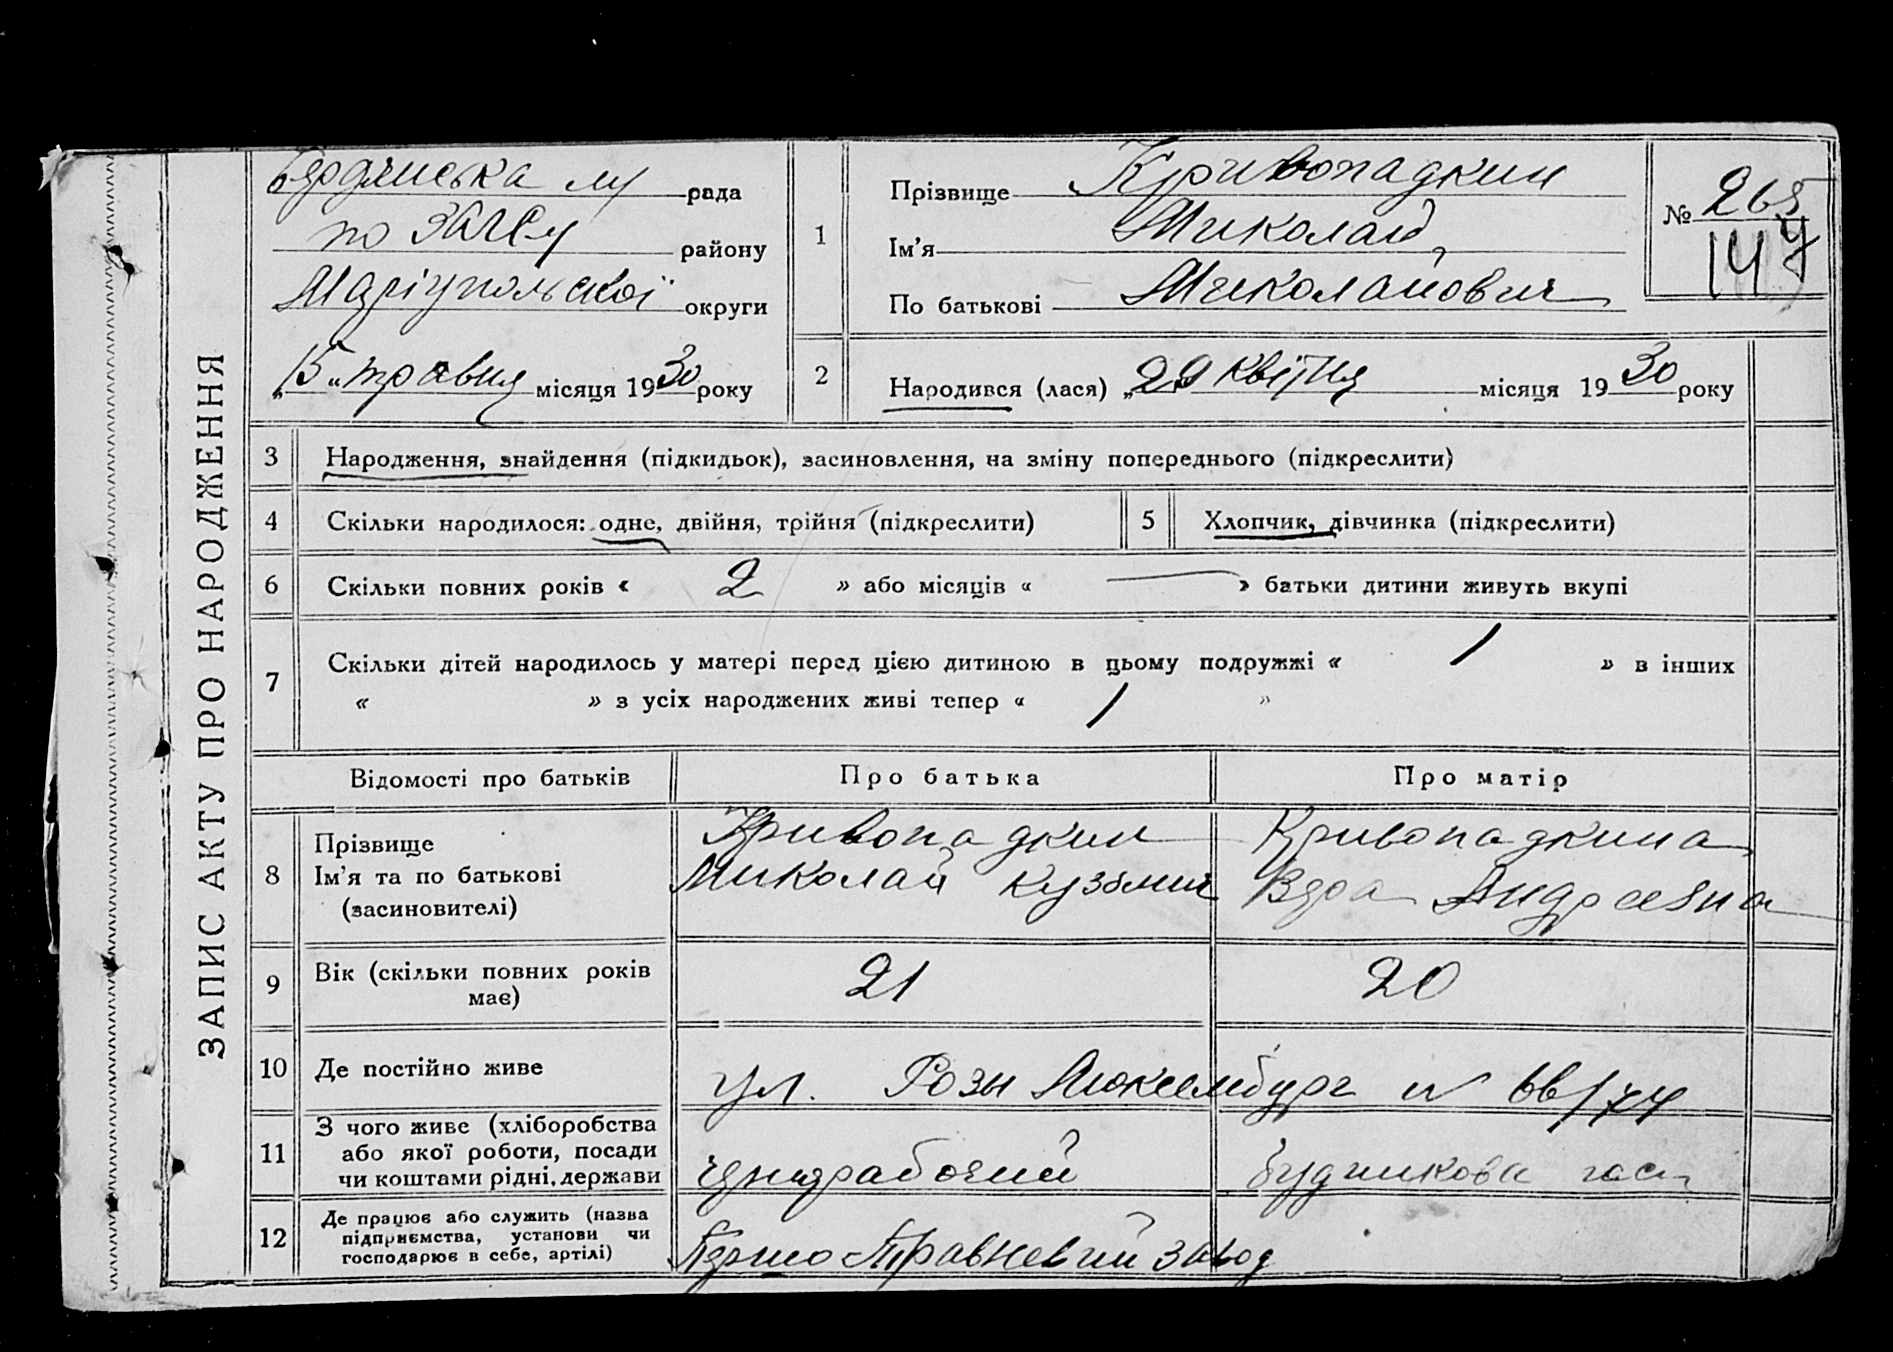 ЗАПИС АКТУ ПРО НАРОДЖЕННЯ
Бердянська рада
по ЗАГСу району
Маріупольської округи
„15“ травня місяця 1930 року
1
Прізвище Кривопадкин
Ім’я Миколай
По батькові Миколайович
№ 265
147
2
Народився (лася) „29 квітня місяця 1930 року
3 Народження, знайдення (підкидьок), засиновлення, на зміну попереднього (підкреслити)
4 Скільки народилося: одне, двійня, трійня (підкреслити)
5 Хлопчик, дівчинка (підкреслити)
6 Скільки повних років « 2 » або місяців « — » батьки дитини живуть вкупі
7 Скільки дітей народилось у матері перед цією дитиною в цьому подружжі « 1 » в інших
« » з усіх народжених живі тепер « 1 »
Відомості про батьків Про батька Про матір
8 Прізвище
Ім’я та по батькові
(засиновителі)
Кривопадкин
Миколай Кузьмич
Кривопадкина
Вера Андреевна
9 Вік (скільки повних років
має)
21 20
10 Де постійно живе
ул. Розы Люксембург № 66/74
11 З чого живе (хліборобства
або якої роботи, посади
чи коштами рідні, держави
чернорабочий
12 Де працює або служить (назва
підприємства, установи чи
господарює в себе, артілі)
Першо Травневий завод